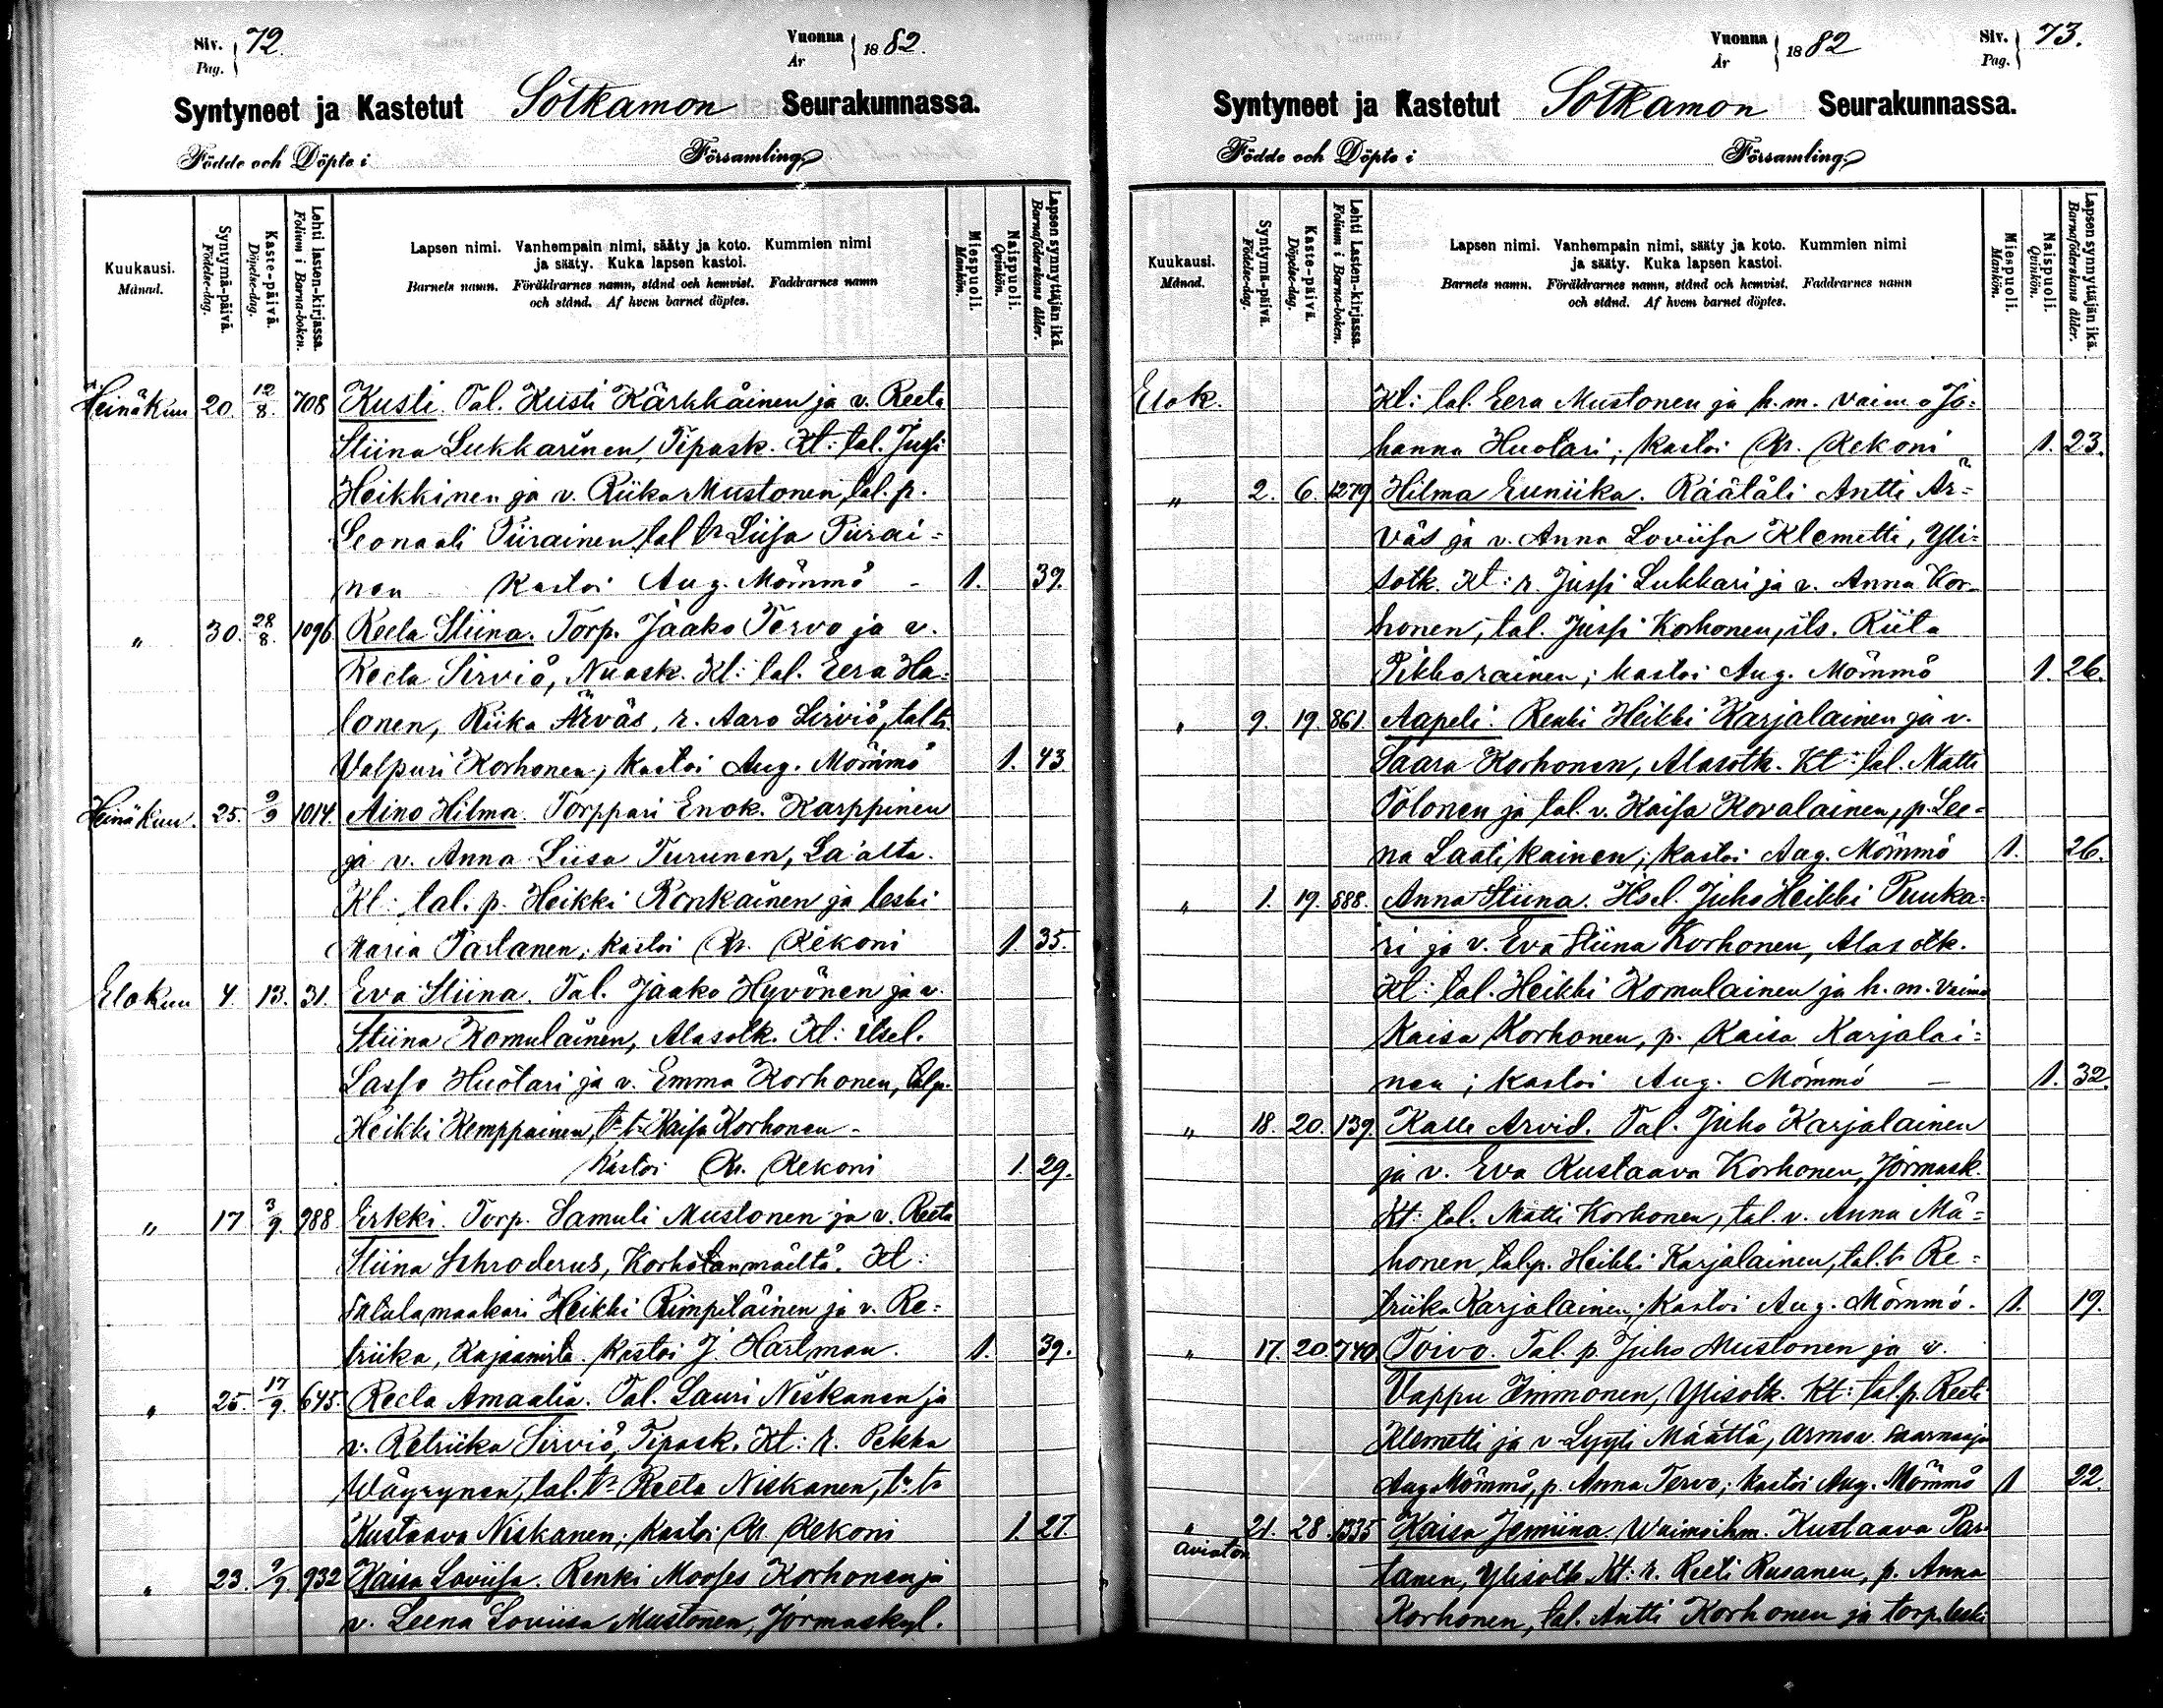 Siv. 72.
Pag.
Vuonna 1882.
År
Syntyneet ja Kastetut Sotkamon Seurakunnassa.
Födde och Döpte i Församling.
Kuukausi. Månad.
Syntymä-päivä. Födelse-dag.
Kaste-päivä. Döpelse-dag.
Lehti lasten-kirjassa. Folium i Barna-boken.
Lapsen nimi. Vanhempain nimi, sääty ja koto. Kummien nimi
ja sääty. Kuka lapsen kastoi.
Barnets namn. Föräldrarnes namn, stånd och hemvist. Faddrarnes namn
och stånd. Af hvem barnet döptes.
Miespuoli. Mankön.
Naispuoli. Qvinkön.
Lapsen synnyttäjän ikä. Barnaföderskans ålder.
Heinäkuu 20 12/8. 708 Kusti. Tal. Kusti Kärkkäinen ja v. Reeta
Stiina Lukkarinen, Tipask. Kt: tal. Jussi
Heikkinen ja v. Riika Mustonen, tal. p.
Leonaali Piirainen, tal tr Liisa Piirai=
nen Kastoi Aug. Mömmö - 1. 39.
„ 30. 28/8. 1096 Reeta Stiina. Torp. Jaako Tervo ja v.
Reeta Sirviö, Nuask. Kt: tal. Eera Ha=
lonen, Riika Ärväs, r. Aaro Sirviö, tal tr.
Valpuri Korhonen; kastoi Aug. Mömmö 1. 43
Heinäkuu. 25. 9/9 1014. Aino Hilma. Torppari Enok. Karppinen
ja v. Anna Liisa Turunen, La'alta.
Kt: tal. p. Heikki Ronkainen ja leski
Maria Partanen; kastoi Kr. Rekoni 1. 35.
Elokuu 4. 13. 31. Eva Stiina. Tal. Jaako Hyvönen ja v.
Stiina Komulainen, Alasotk. Kt: itsel.
Lasse Huotari ja v. Emma Korhonen, talp.
Heikki Kemppainen, tr tr Kaisa Korhonen -
Kastoi Kr. Rekoni 1. 29.
„ 17 3/9. 988 Erkki. Torp. Samuli Mustonen ja v. Reeta
Stiina Schroderus, Korholanmäeltä. Kt:
Satulamaakari Heikki Rimpiläinen ja v. Re=
triika, Kajaanista. Kastoi J. Hartman. 1. 39.
„ 25. 17/9. 645. Reeta Amaalia. Tal. Lauri Niskanen ja
v. Retriika Sirviö, Tipask. Kt: r. Pekka
Wäyrynen, tal. tr Reeta Niskanen, tr tr
Kustaava Niskanen; kastoi Kr. Rekoni 1. 27.
„ 23. 9/9. 932 Kaisa Loviisa. Renki Mooses Korhonen ja
v. Leena Loviisa Mustonen, Jormaskyl.
Vuonna 1882
År
Siv. 73.
Pag.
Syntyneet ja Kastetut Sotkamon Seurakunnassa.
Födde och Döpte i Församling.
Kuukausi. Månad.
Syntymä-päivä. Födelse-dag.
Kaste-päivä. Döpelse-dag.
Lehti Lasten-kirjassa. Folium i Barna-boken.
Lapsen nimi. Vanhempain nimi, sääty ja koto. Kummien nimi
ja sääty. Kuka lapsen kastoi.
Barnets namn. Föräldrarnes namn, stånd och hemvist. Faddrarnes namn
och stånd. Af hvem barnet döptes.
Miespuoli. Mankön.
Naispuoli. Qvinkön.
Lapsen synnyttäjän ikä. Barnaföderskans ålder.
Elok. Kt: tal. Eera Mustonen ja h. m. vaimo Jo=
hanna Huotari; kastoi Kr. Rekoni 1. 23.
„ 2. 6. 1279 Hilma Euniika. Räätäli Antti Är=
väs ja v. Anna Loviisa Klemetti, Yli=
sotk. Kt: r. Jussi Lukkari ja v. Anna Kor=
honen, tal. Jussi Korhonen, its. Riita
Pikkarainen; kastoi Aug. Mömmö 1. 26.
„ 9. 19. 861. Aapeli. Renki Heikki Karjalainen ja v.
Saara Korhonen, Alasotk. Kt: tal. Matti
Polonen ja tal. v. Kaisa Kovalainen, p. Lee=
na Laatikainen; kastoi Aug. Mömmö 1. 26.
„ 1. 19. 888. Anna Stiina. Itsel. Juho Heikki Puuka=
ri ja v. Eva Stiina Korhonen, Alasotk.
Kt: tal. Heikki Komulainen ja h. m. vaimo
Kaisa Korhonen, p. Kaisa Karjalai=
nen; kastoi Aug. Mömmö - 1. 32.
„ 18. 20. 139. Kalle Arvid. Tal. Juho Karjalainen
ja v. Eva Kustaava Korhonen, Jormask.
Kt: tal. Matti Korhonen, tal. v. Anna Mä=
honen, talp. Heikki Karjalainen, tal. tr Re=
triika Karjalainen; kastoi Aug. Mömmö. 1. 19.
„ 17. 20. 740. Toivo. Tal. p. Juho Mustonen ja v.
Vappu Immonen, Ylisotk. Kt: tal. p. Reeti
Klemetti ja v. Lyyti Määttä, armov. saarnaaja
Aug. Mömmö, p. Anna Tervo; kastoi Aug. Mömmö 1 22.
„ 21. 28. 1335 Kaisa Jemiina. Waimoihm. Kustaava Par=
avioton
tanen, Ylisotk. Kt: r. Reeti Rusanen, p. Anna
Korhonen, tal. Antti Korhonen ja torp. leski